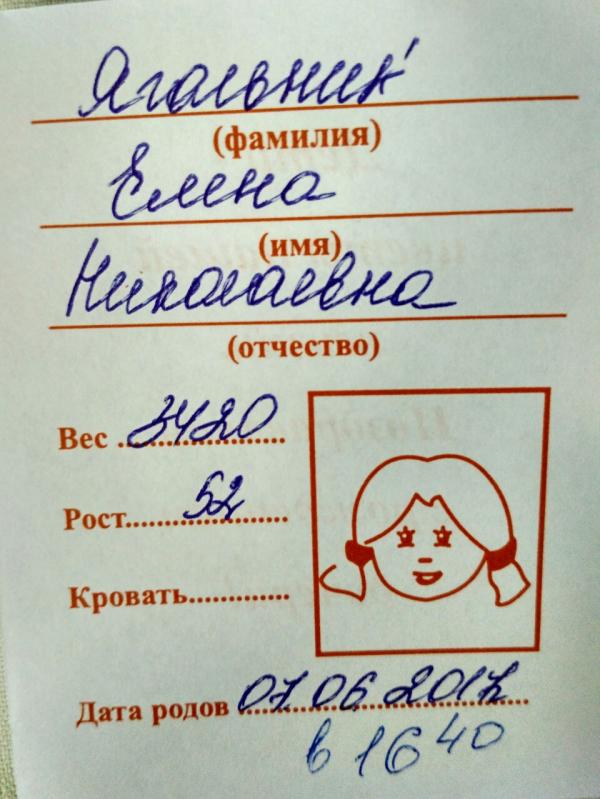 Ягольник
(фамилия)
Елена
(имя)
Николаевна
(отчество)
Вес 3420
Рост 52
Кровать
Дата родов 07.06.2017
в 16 40